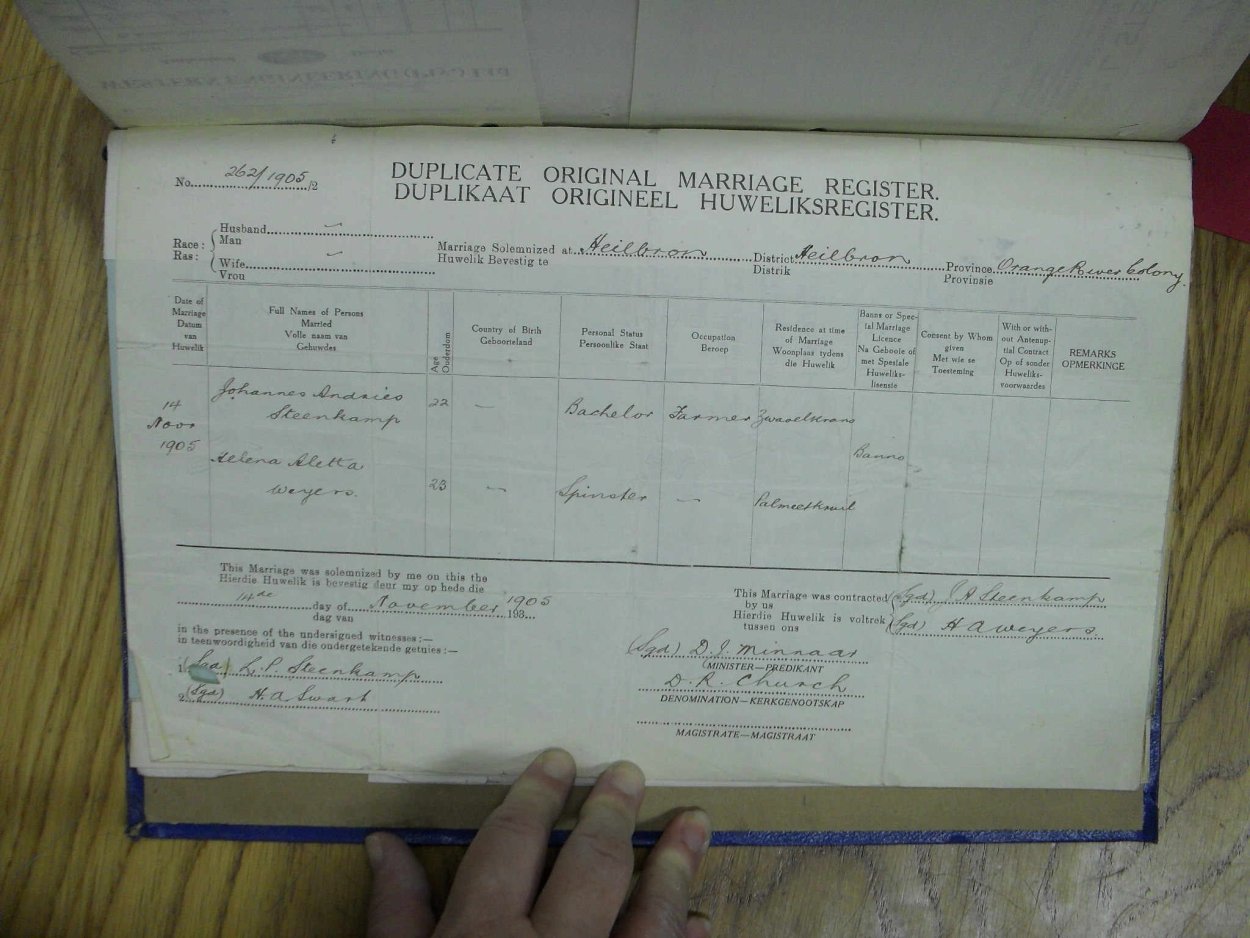 No. 262/1905 /2
DUPLICATE ORIGINAL MARRIAGE REGISTER.
DUPLIKAAT ORIGINEEL HUWELIKSREGISTER.
Race: Husband
Ras: Man
Wife
Vrou
Marriage Solemnized at Heilbron District Heilbron Province Orange River Colony.
Huwelik Bevestig te Distrik Provinsie
Date of Marriage Datum van Huwelik
Full Names of Persons Married Volle naam van Gehuwdes
Age Ouderdom
Country of Birth Geboorteland
Personal Status Persoonlike Staat
Occupation Beroep
Residence at time of Marriage Woonplaas tydens die Huwelik
Banns or Special Marriage Licence Na Gebooie of met Spesiale Huwelikslisensie
Consent by Whom given Met wie se Toesteming
With or without Antenuptial Contract Op of sonder Huweliksvoorwaardes
REMARKS OPMERKINGE
14 Novr 1905
Johannes Andries Steenkamp 22 — Bachelor Farmer Zwavelkrans
Banns
Helena Aletta Weyers. 23 — Spinster —
This Marriage was solemnized by me on this the
Hierdie Huwelik is bevestig deur my op hede die
14de day of November 1905 193...
dag van
in the presence of the undersigned witnesses:—
in teenwoordigheid van die ondergetekende getuies:—
1. (Sgd) L. P. Steenkamp
2. (Sgd) H. A. Swart
This Marriage was contracted by us (Sgd) J A Steenkamp
Hierdie Huwelik is voltrek tussen ons (Sgd) H A Weyers.
(Sgd) D. J. Minnaar
MINISTER—PREDIKANT
D. R. Church
DENOMINATION—KERKGENOOTSKAP
MAGISTRATE—MAGISTRAAT